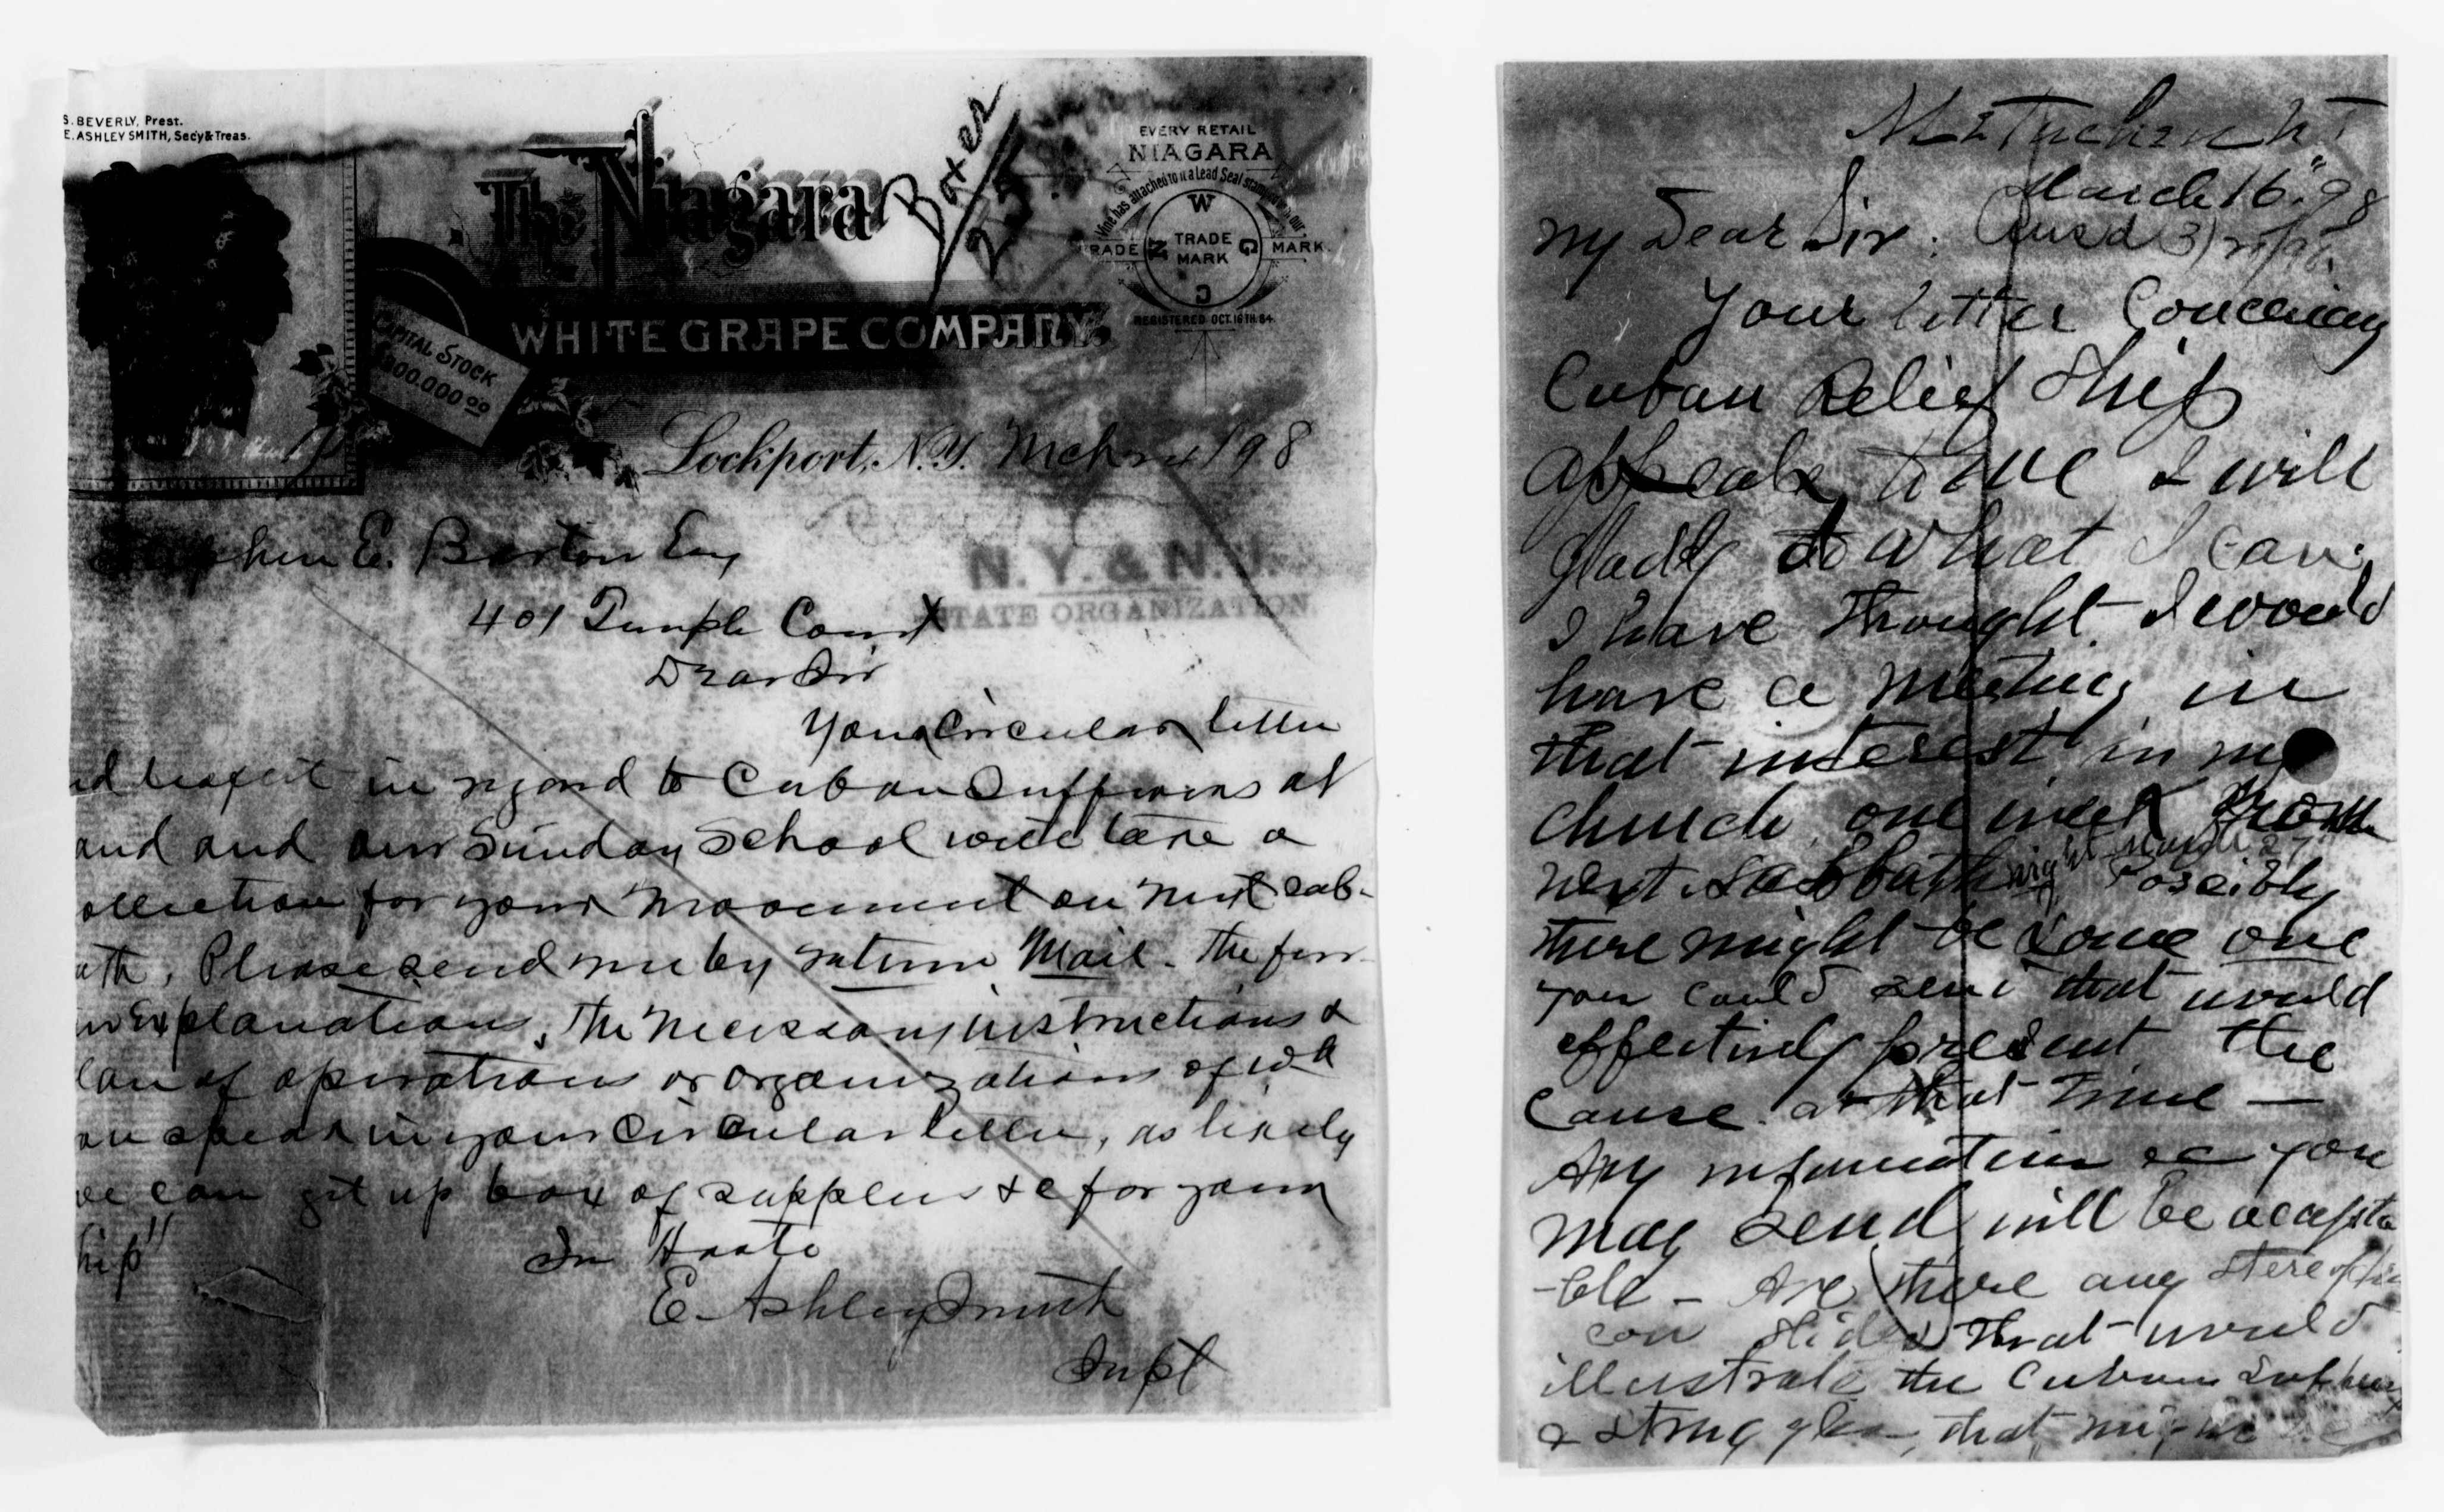 S. BEVERLY, Prest.
E. ASHLEY SMITH, Sec'y & Treas.
The Niagara
WHITE GRAPE COMPANY.
CAPITAL STOCK
00.000 00
EVERY RETAIL
NIAGARA
Vine has attached to it a Lead Seal stamped our
RADE MARK.
TRADE
MARK
W G C N
REGISTERED OCT. 16TH. 84.
Lockport, N.Y. Mch 98
N.Y. & N.J.
STATE ORGANIZATION.
phen E. Barton Esq
401 Temple Court
Dear Sir
Your Circular letter
in regard to Cuban Sufferers at
and and our Sunday School will take a
ollection for your movement on next Sab-
ath. Please send me by return Mail - the
Explanations, the necessary instructions &
lan of operations or organizations of wh
ou speak in your Circular letter, as likely
we can git up box of supplies &c for your
hip"
In Haste
E. Ashley Smith
Supt
Metuchen N J
March 16" 98
My Dear Sir:
Your letter Concerning
Cuban Relief Ship
appeals to me I will
gladly do what I can.
I have thought I would
have a meeting in
that interest in my
church, one week from
next Sabbath night March 27 Possibly
there might be some one
you could send that would
effectively present the
Cause at that Time —
Any information &c you
may send will be accepta
-ble - Are there any stereopti
con slides that would
illustrate the Cuban Suffering
& struggles, that might be